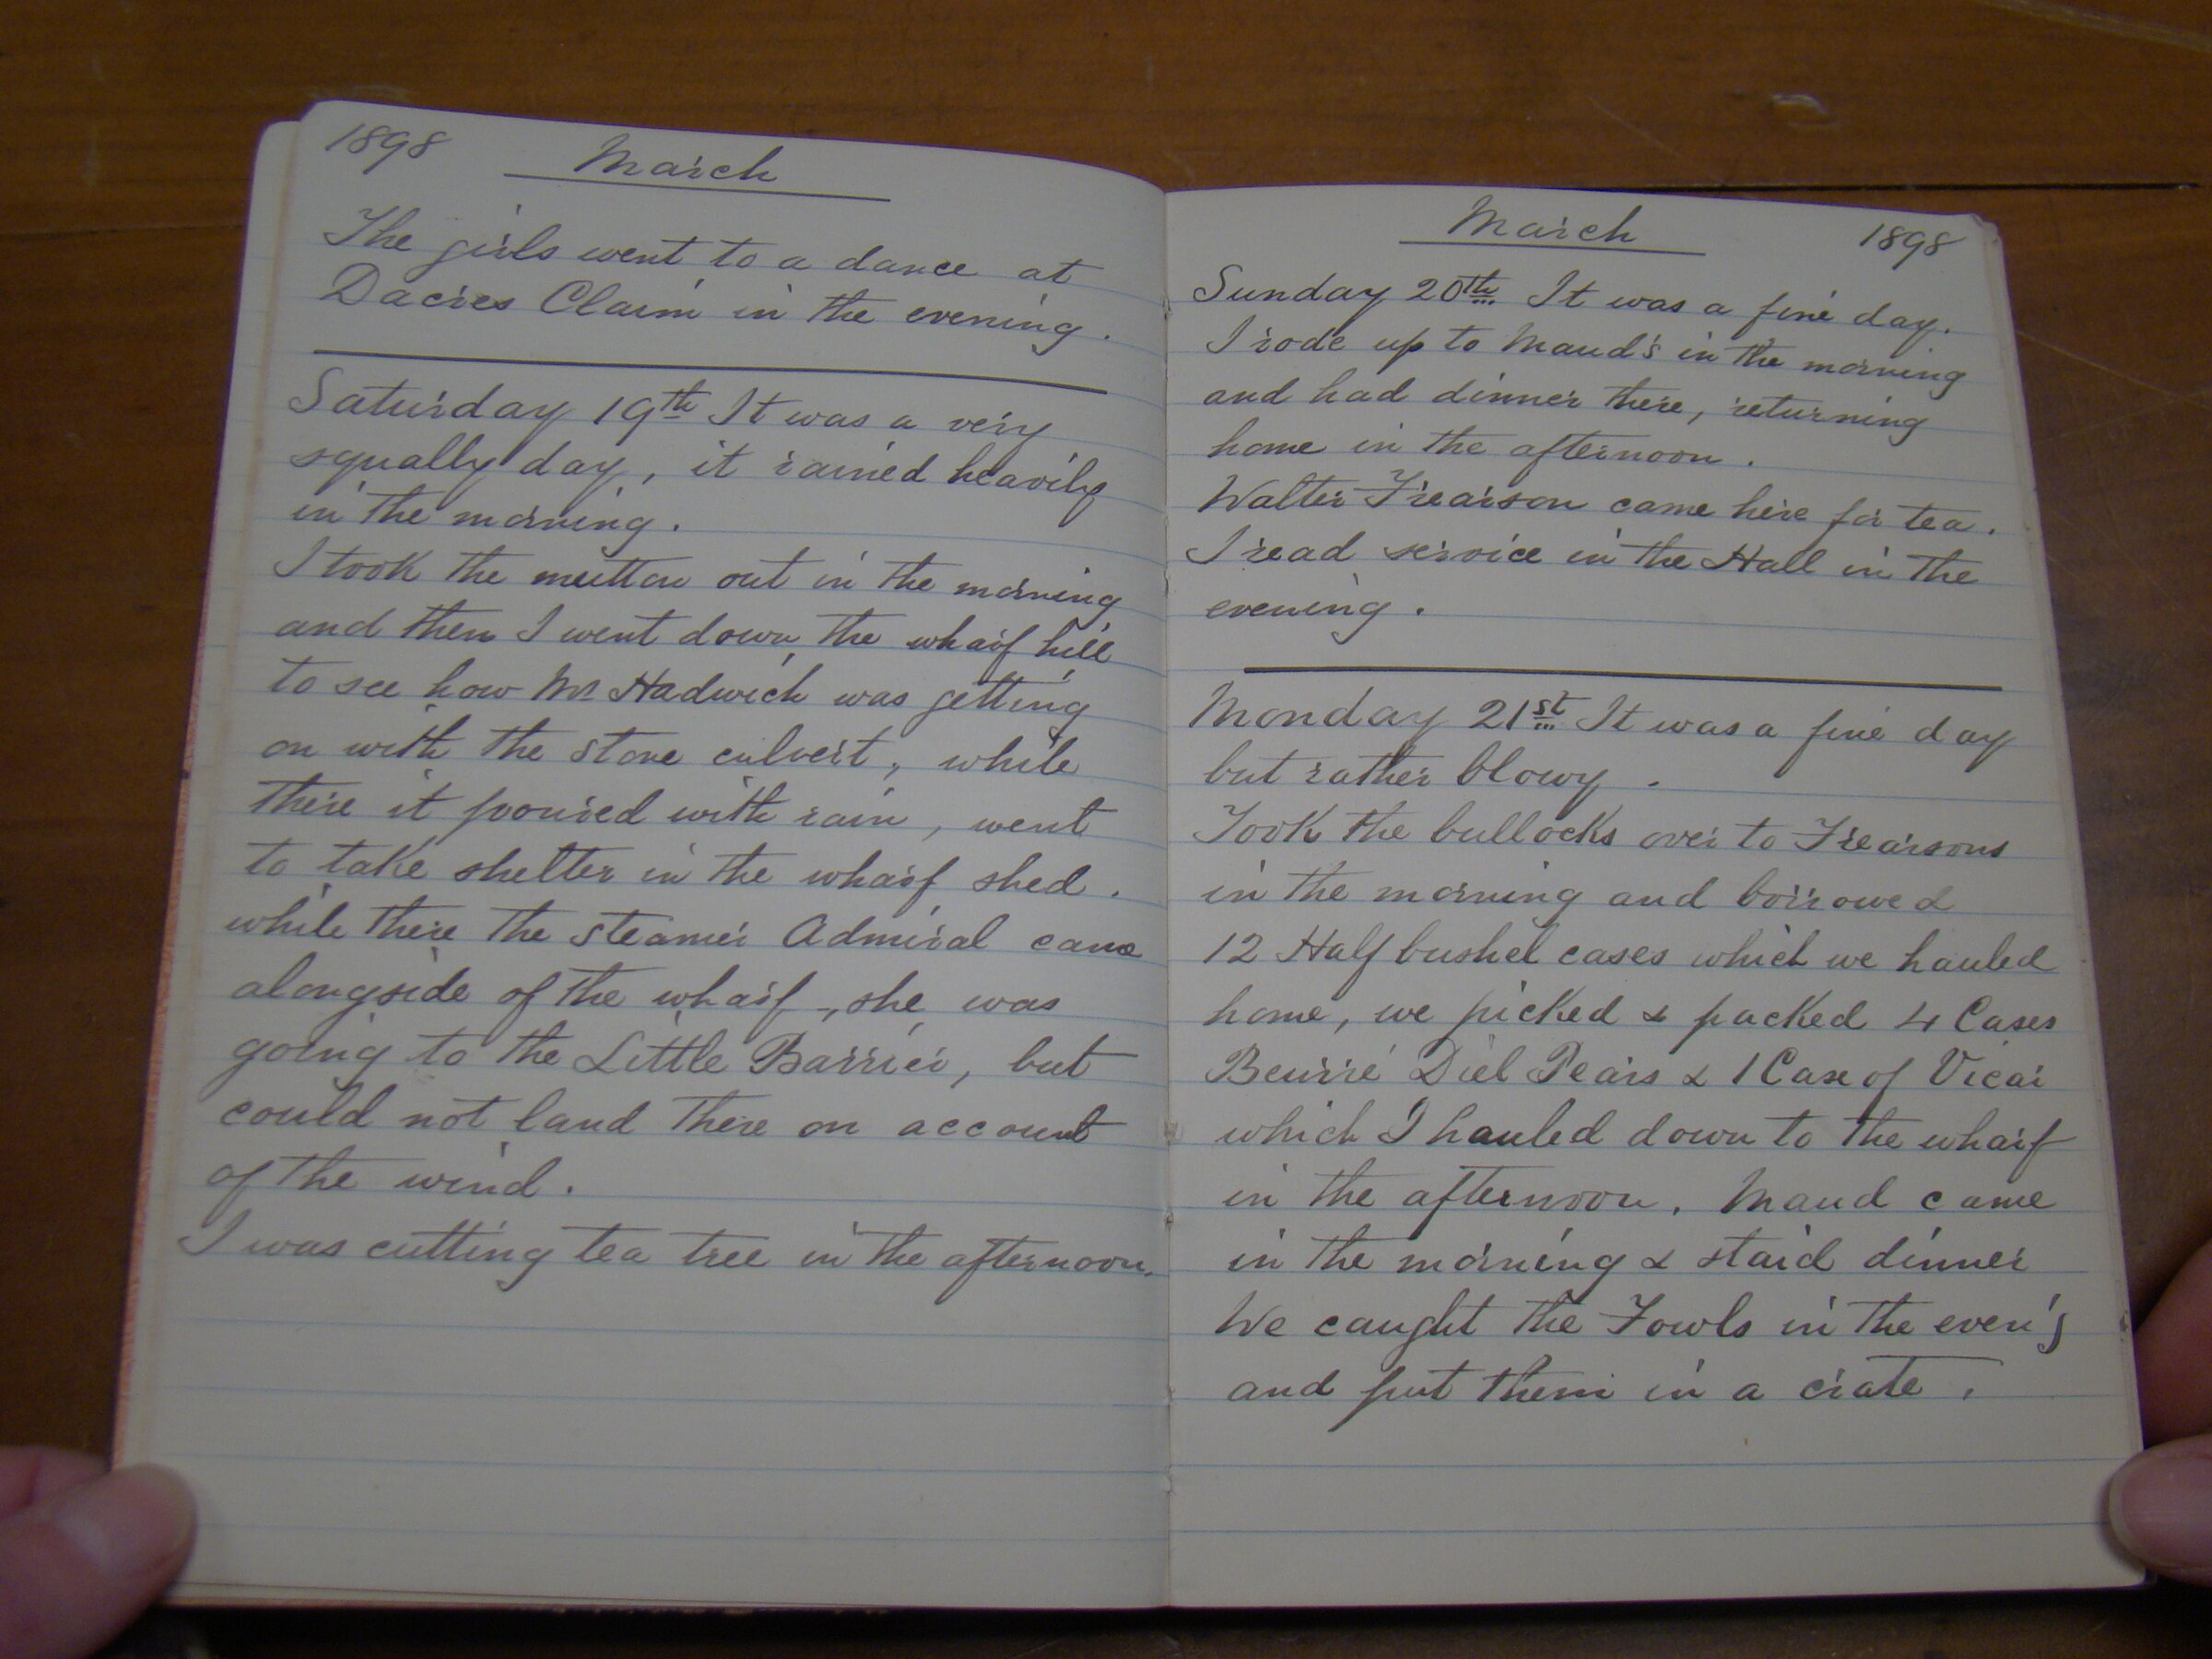 1898 March
The girls went to a dance at
Dacres Claim in the evening.
Saturday 19th It was a very
squally day, it rained heavily
in the morning.
I took the mutton out in the morning
and then I went down the wharf hill
to see how Mr Hadwick was getting
on with the stone culvert, while
there it poured with rain, went
to take shelter in the wharf shed.
while there the steamer Admiral came
alongside of the wharf, she was
going to the Little Barrier, but
could not land there on account
of the wind.
I was cutting tea tree in the afternoon.
March 1898
Sunday 20th It was a fine day.
I rode up to Maud's in the morning
and had dinner there, returning
home in the afternoon.
Walter Frearson came here for tea.
I read service in the Hall in the
evening.
Monday 21st It was a fine day
but rather blowy.
Took the bullocks over to Frearsons
in the morning and borrowed
12 Half bushel cases which we hauled
home, we picked & packed 4 Cases
Beurré Diel Pears & 1 Case of Vicar
which I hauled down to the wharf
in the afternoon. Maud came
in the morning & staid dinner
We caught the Fowls in the even'g
and put them in a crate.